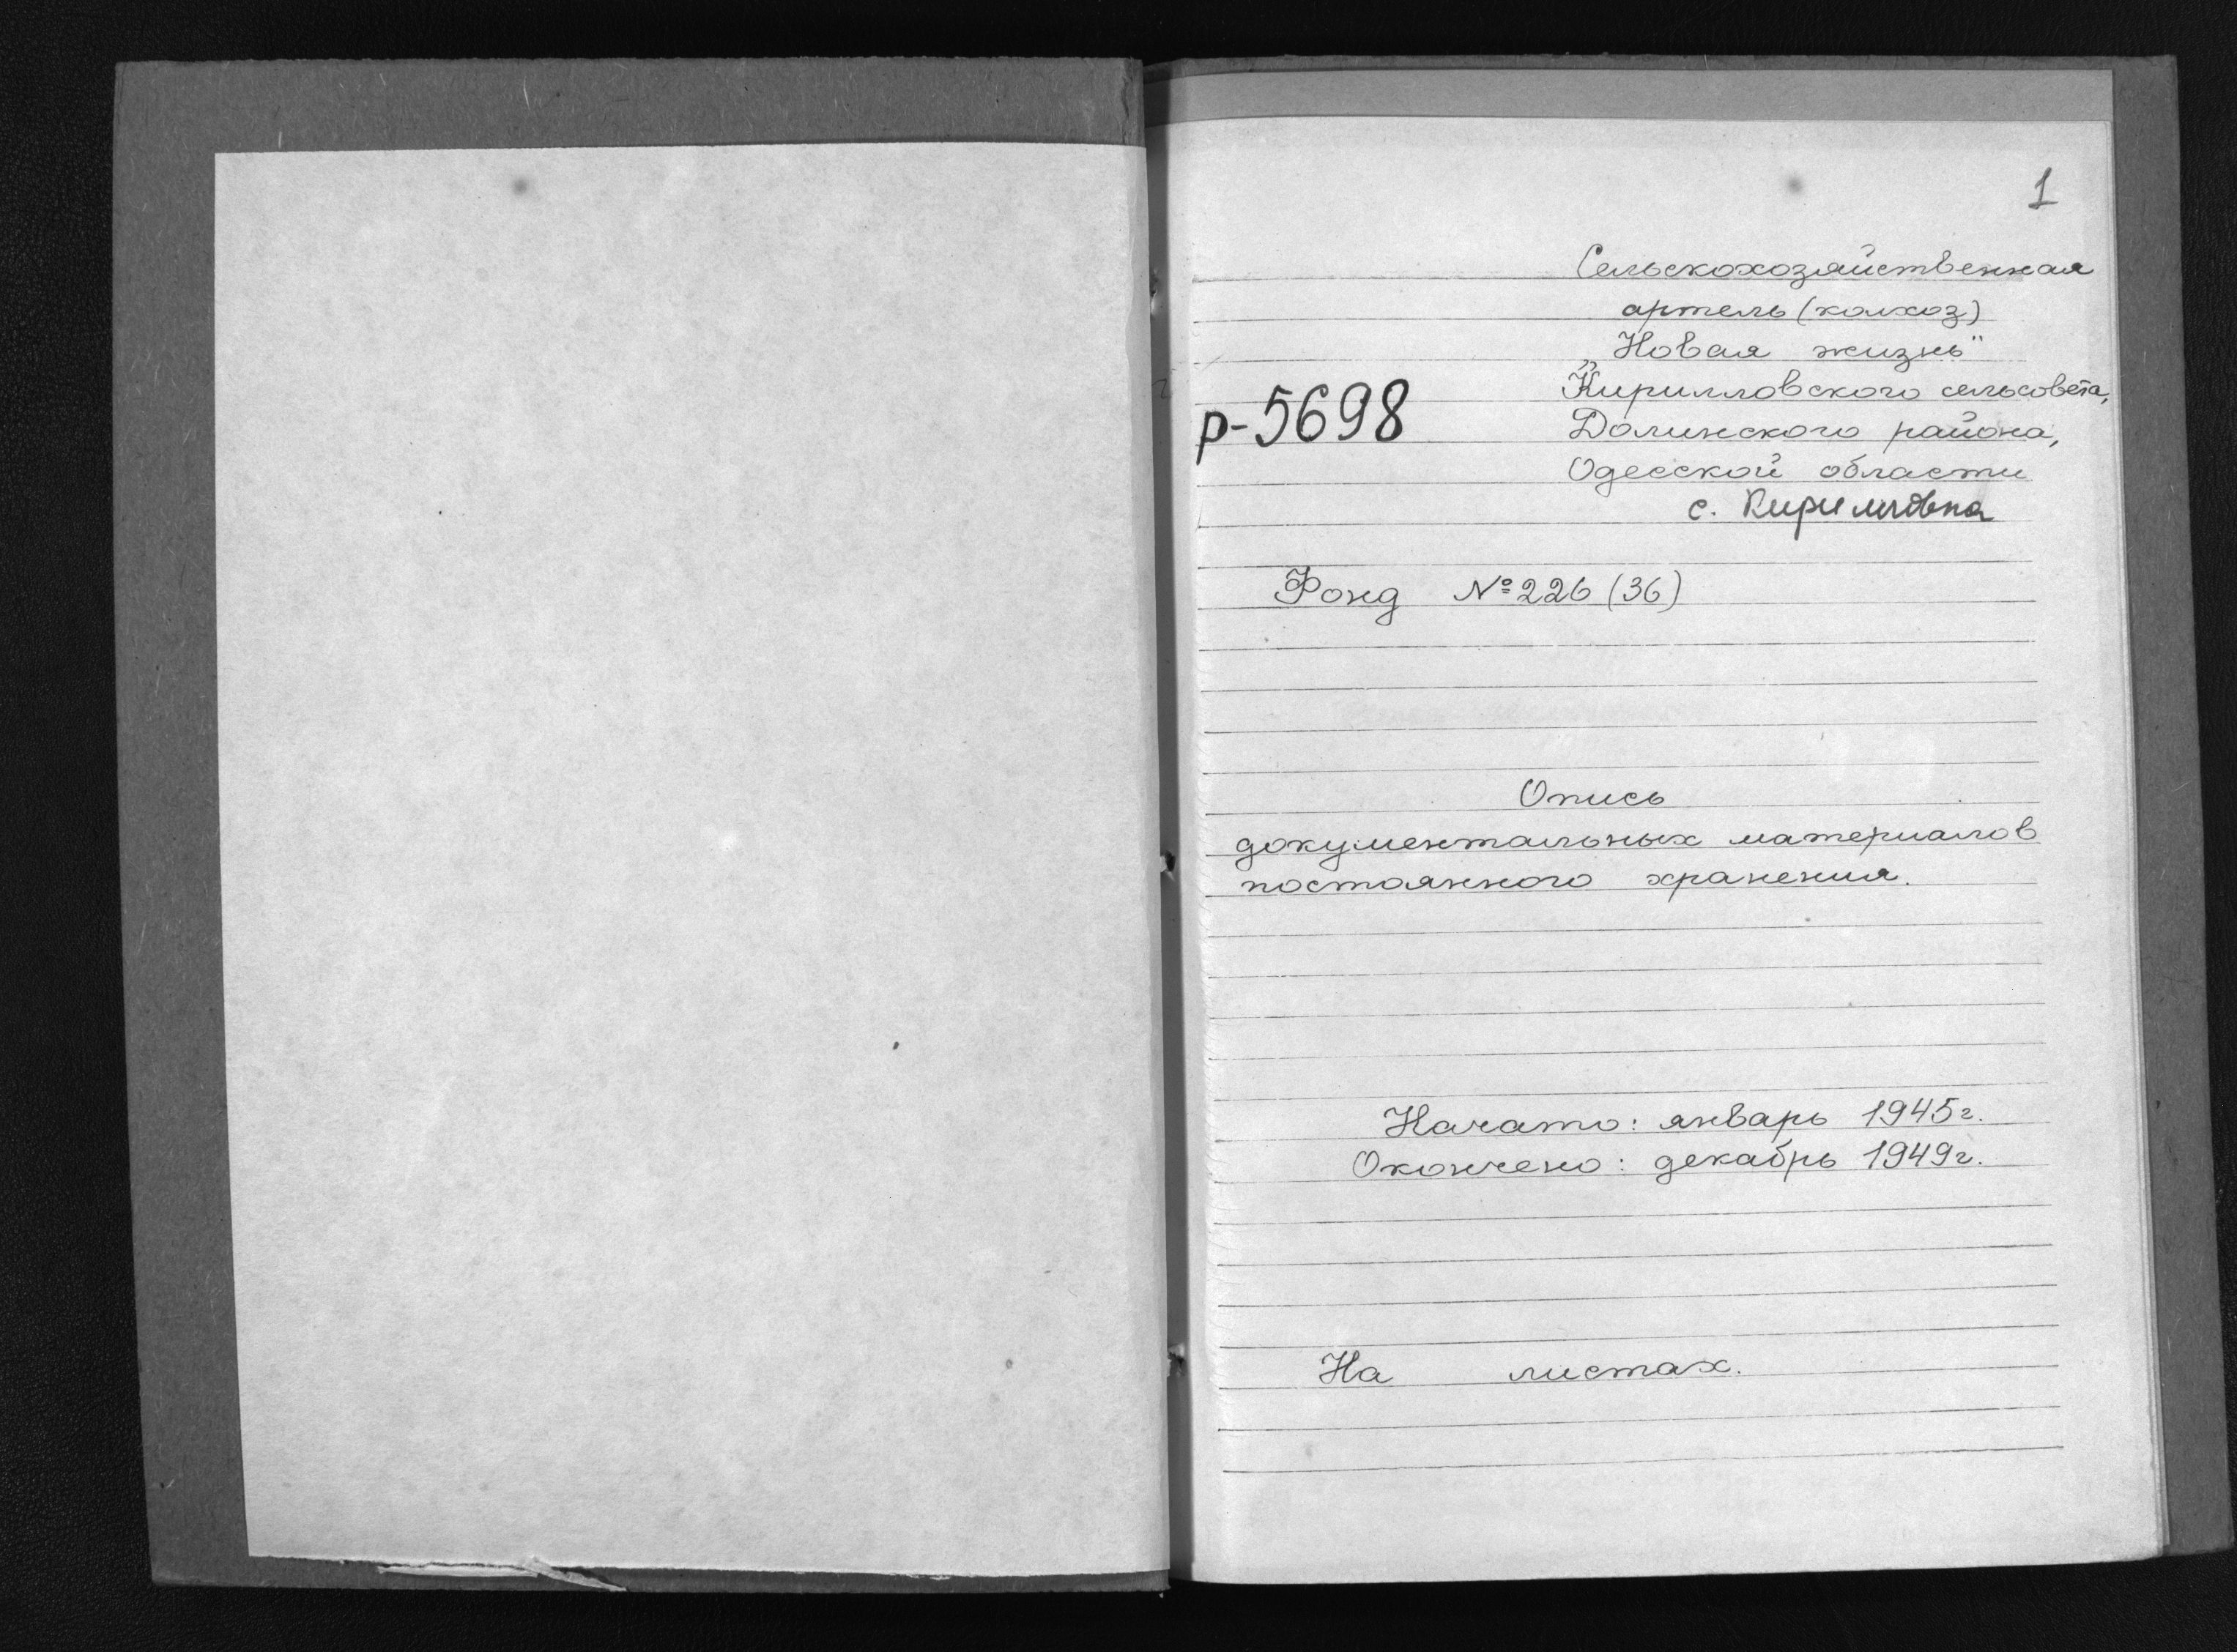 1
Сельскохозяйственная
артель (колхоз)
„Новая жизнь"
Кирилловского сельсовета,
р-5698
Долинского района,
Одесской области
с. Кирилловка
Фонд №226 (36)
Опись
документальных материалов
постоянного хранения.
Начато: январь 1945г.
Окончено: декабрь 1949г.
На листах.